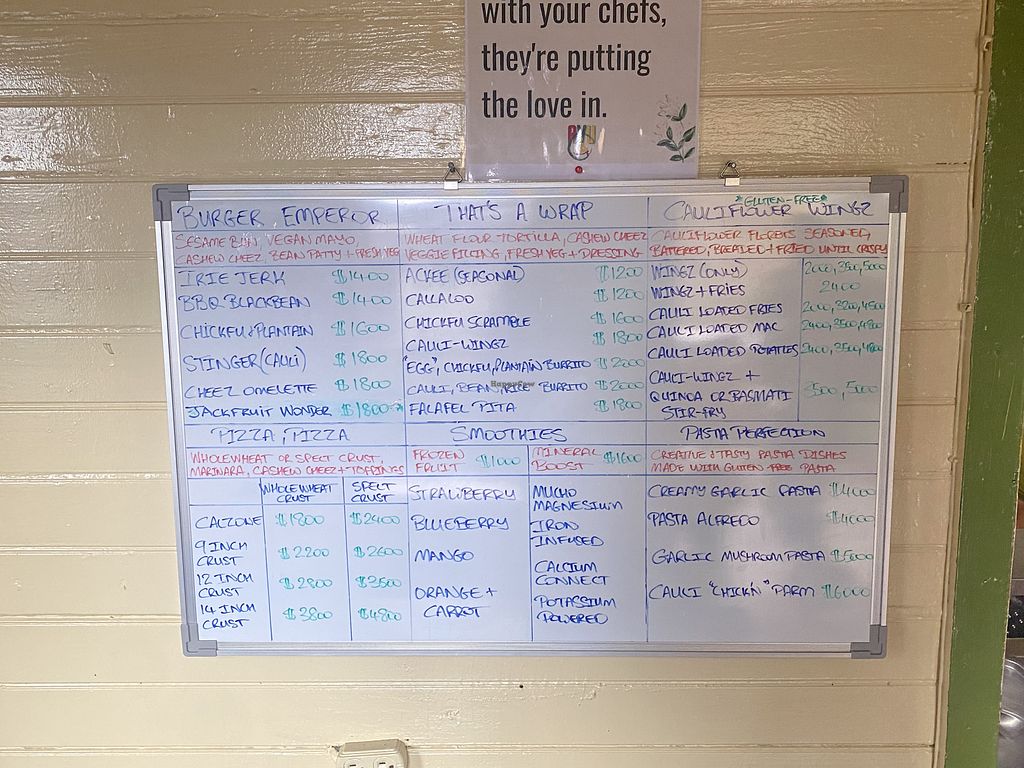 with your chefs,
they're putting
the love in.
BURGER EMPEROR
SESAME BUN, VEGAN MAYO,
CASHEW CHEEZ, BEAN PATTY + FRESH VEG
IRIE JERK $1400
BBQ BLACKBEAN $1400
CHICKFU & PLANTAIN $1600
STINGER (CAULI) $1800
CHEEZ OMELETTE $1800
JACKFRUIT WONDER $1800
THAT'S A WRAP
WHEAT FLOUR TORTILLA, CASHEW CHEEZ
VEGGIE FILLING, FRESH VEG + DRESSING
ACKEE (SEASONAL) $1200
CALLALOO $1200
CHICKFU SCRAMBLE $1600
CAULI-WINGZ $1800
"EGG", CHICKFU, PLANTAIN BURRITO $2200
CAULI, BEAN, RICE BURRITO $2000
FALAFEL PITA $1800
*GLUTEN-FREE*
CAULIFLOWER WINGZ
CAULIFLOWER FLORETS SEASONED,
BATTERED, BREADED + FRIED UNTIL CRISPY
WINGZ (ONLY) 2000, 3500, 5000
WINGZ + FRIES 2400
CAULI LOADED FRIES 2000, 3200, 4500
CAULI LOADED MAC 2400, 3500, 4800
CAULI LOADED POTATIES 2400, 3500, 4800
CAULI-WINGZ +
QUINOA OR BASMATI 3500, 5000
STIR-FRY
PIZZA, PIZZA
WHOLEWHEAT OR SPELT CRUST,
MARINARA, CASHEW CHEEZ + TOPPINGS
WHOLEWHEAT CRUST SPELT CRUST
CALZONE $1800 $2400
9 INCH CRUST $2200 $2600
12 INCH CRUST $2800 $3500
14 INCH CRUST $3800 $4800
SMOOTHIES
FROZEN FRUIT $1000
STRAWBERRY
BLUEBERRY
MANGO
ORANGE +
CARROT
MINERAL BOOST $1600
MUCHO
MAGNESIUM
IRON
INFUSED
CALCIUM
CONNECT
POTASSIUM
POWERED
PASTA PERFECTION
CREATIVE & TASTY PASTA DISHES
MADE WITH GLUTEN FREE PASTA
CREAMY GARLIC PASTA $4000
PASTA ALFREDO $4000
GARLIC MUSHROOM PASTA $5000
CAULI "CHICK'N" PARM $6000
HappyCow